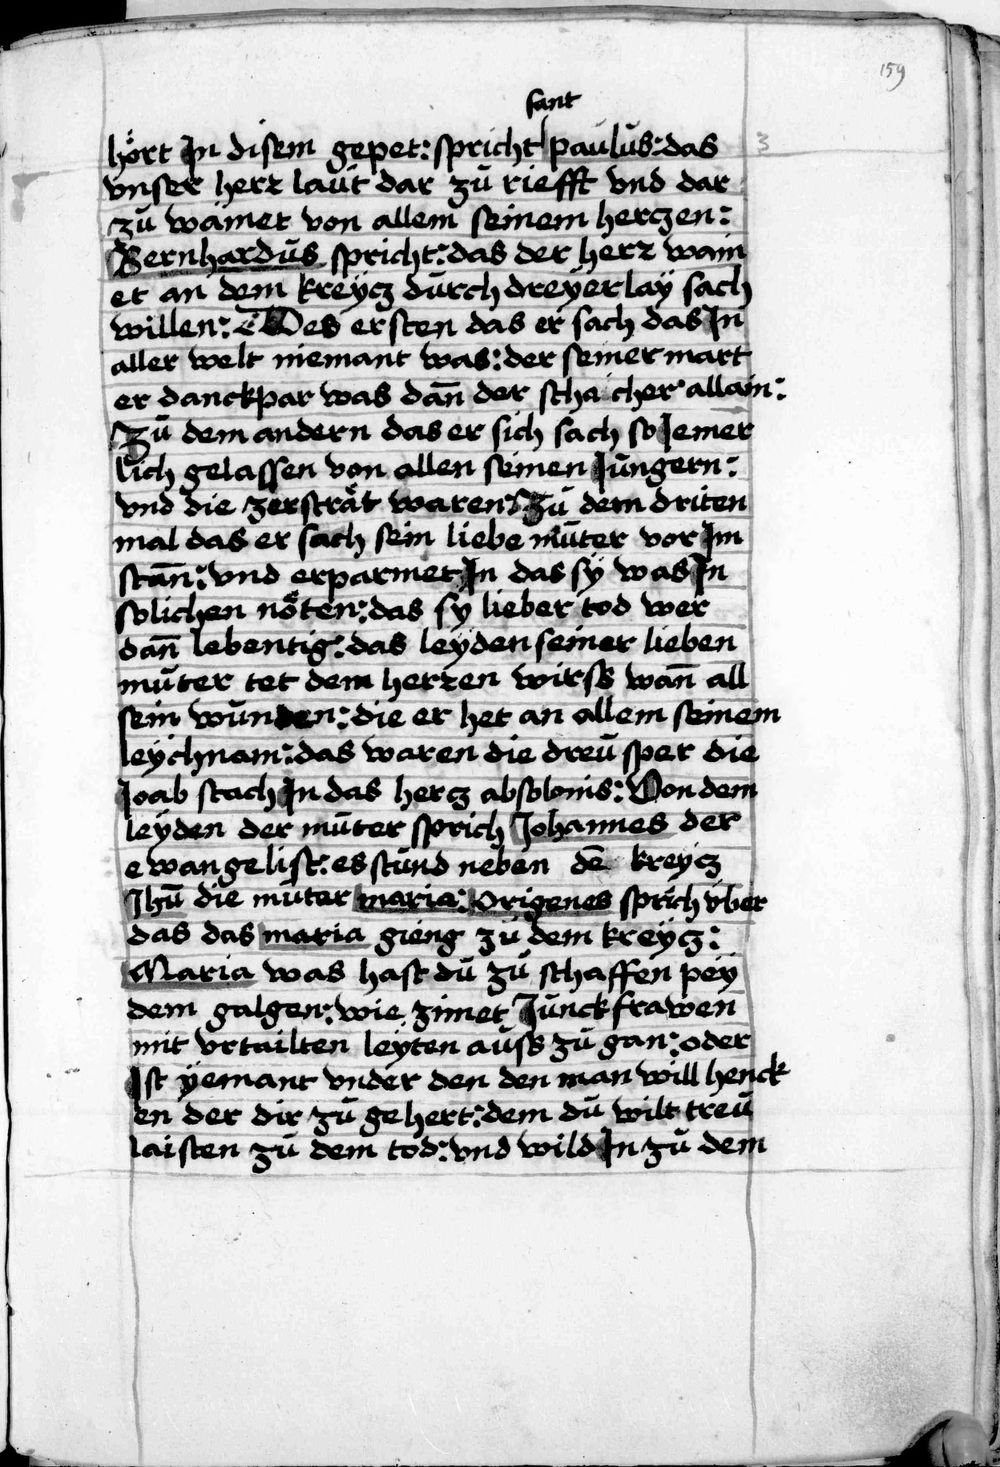 159
sant
hört In disem gepet: spricht paulus: das
vnser herr laut dar zů riefft vnd dar
zů wainet von allem seinem herczen:
Bernhardus spricht: das der herr wain
et an dem kreycz durch dreyerlay sach
willen: Des ersten das er sach das In
aller welt niemant was: der seiner mart
er danckpar was dan̄ der schacher allain:
Zů dem andern das er sich sach so Iemer
lich gelassen von allen seinen Jungern:
vnd die zersträt waren: Zů dem driten
mal das er sach sein liebe můter vor Im
stan̄: vnd erparmet In das sÿ was In
solichen nöten: das sy lieber tod wer
dan̄ lebentig: das leyden seiner lieben
můter tet dem herren wirss wan̄ all
sein wunden: die er het an allem seinem
leychnam: das waren die dreu sper die
Joab stach In das hercz absolonis: Von dem
leyden der můter sprich Johannes der
ewangelist: es stund neben dē kreycz
Jhū die muter maria: Origenes sprich vber
das das maria gieng zů dem kreycz:
Maria was hast du zů schaffen peÿ
dem galgen: wie zimet Junckfrawen
mit vrtailten leyten auss zů gan: oder
Ist ÿemant vnder den den man will henck
en der dir zů gehert: dem du wilt treu
laisten zů dem tod: vnd wild In zů dem